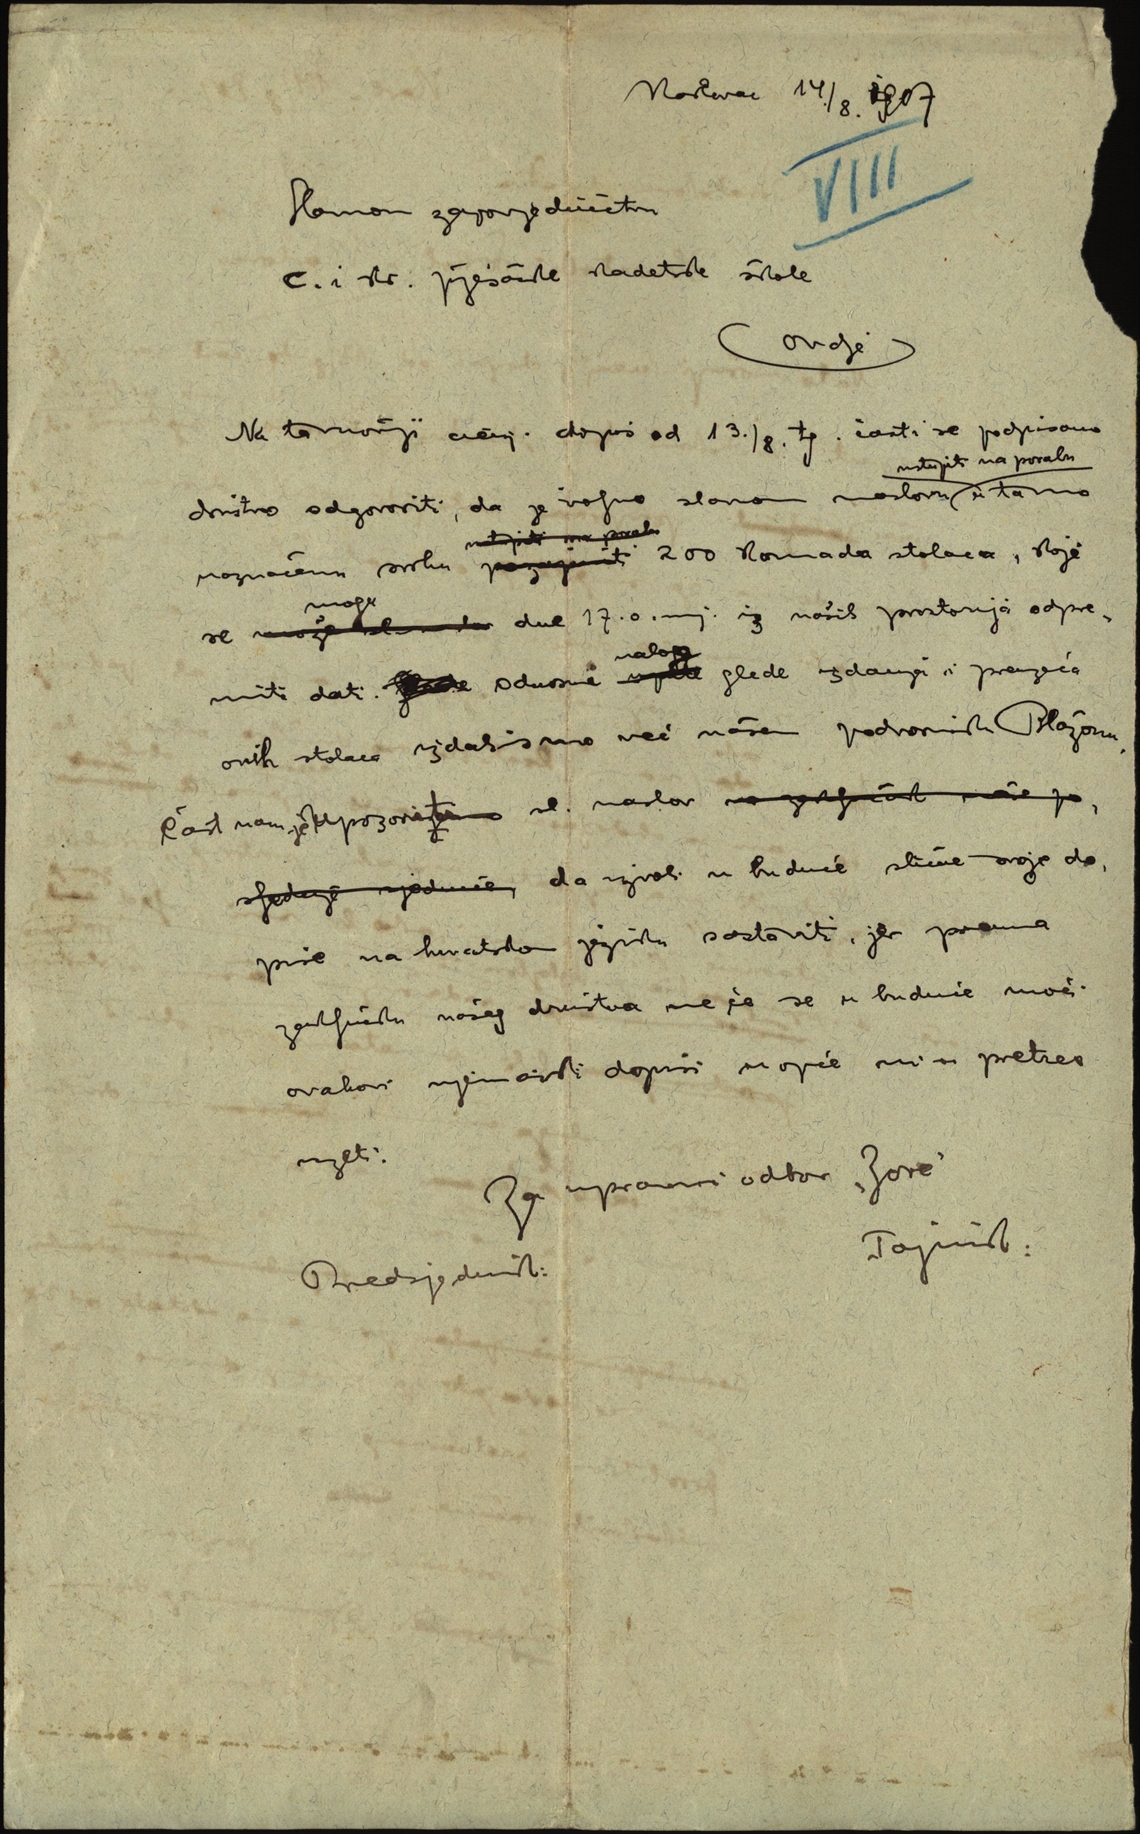 Karlovac 14./8. 1907
VIII
Slavnom zapovjedničtvu
c. i kr. pješačke kadetske škole
Ovdje
Na tamošnji cienj. dopis od 13./8. tg. časti se podpisano
ustupiti na porabu
društvo odgovoriti, da je voljno slavnom naslovu u tamo
ustupiti na porabu
naznačenu svrhu pozajmiti 200 komada stolaca, koje
mogu
se može dne 17. o. mj. iz naših prostorija odpre-
nalog
miti dati. Odnosne glede izdanja i preuzeća
ovih stolaca izdali smo već našem podvorniku Blažonu.
Čast nam je upozoriti sl. naslov na zaključak naše po-
sljednje sjednice, da izvoli u buduće slične svoje do-
pise na hrvatskom jeziku sastaviti, jer prama
zaključku našeg društva ne će se u buduće moći
ovakovi njemački dopisi u opće ni u pretres
uzeti.
Za upravni odbor „Zore“
Tajnik:
Predsjednik: